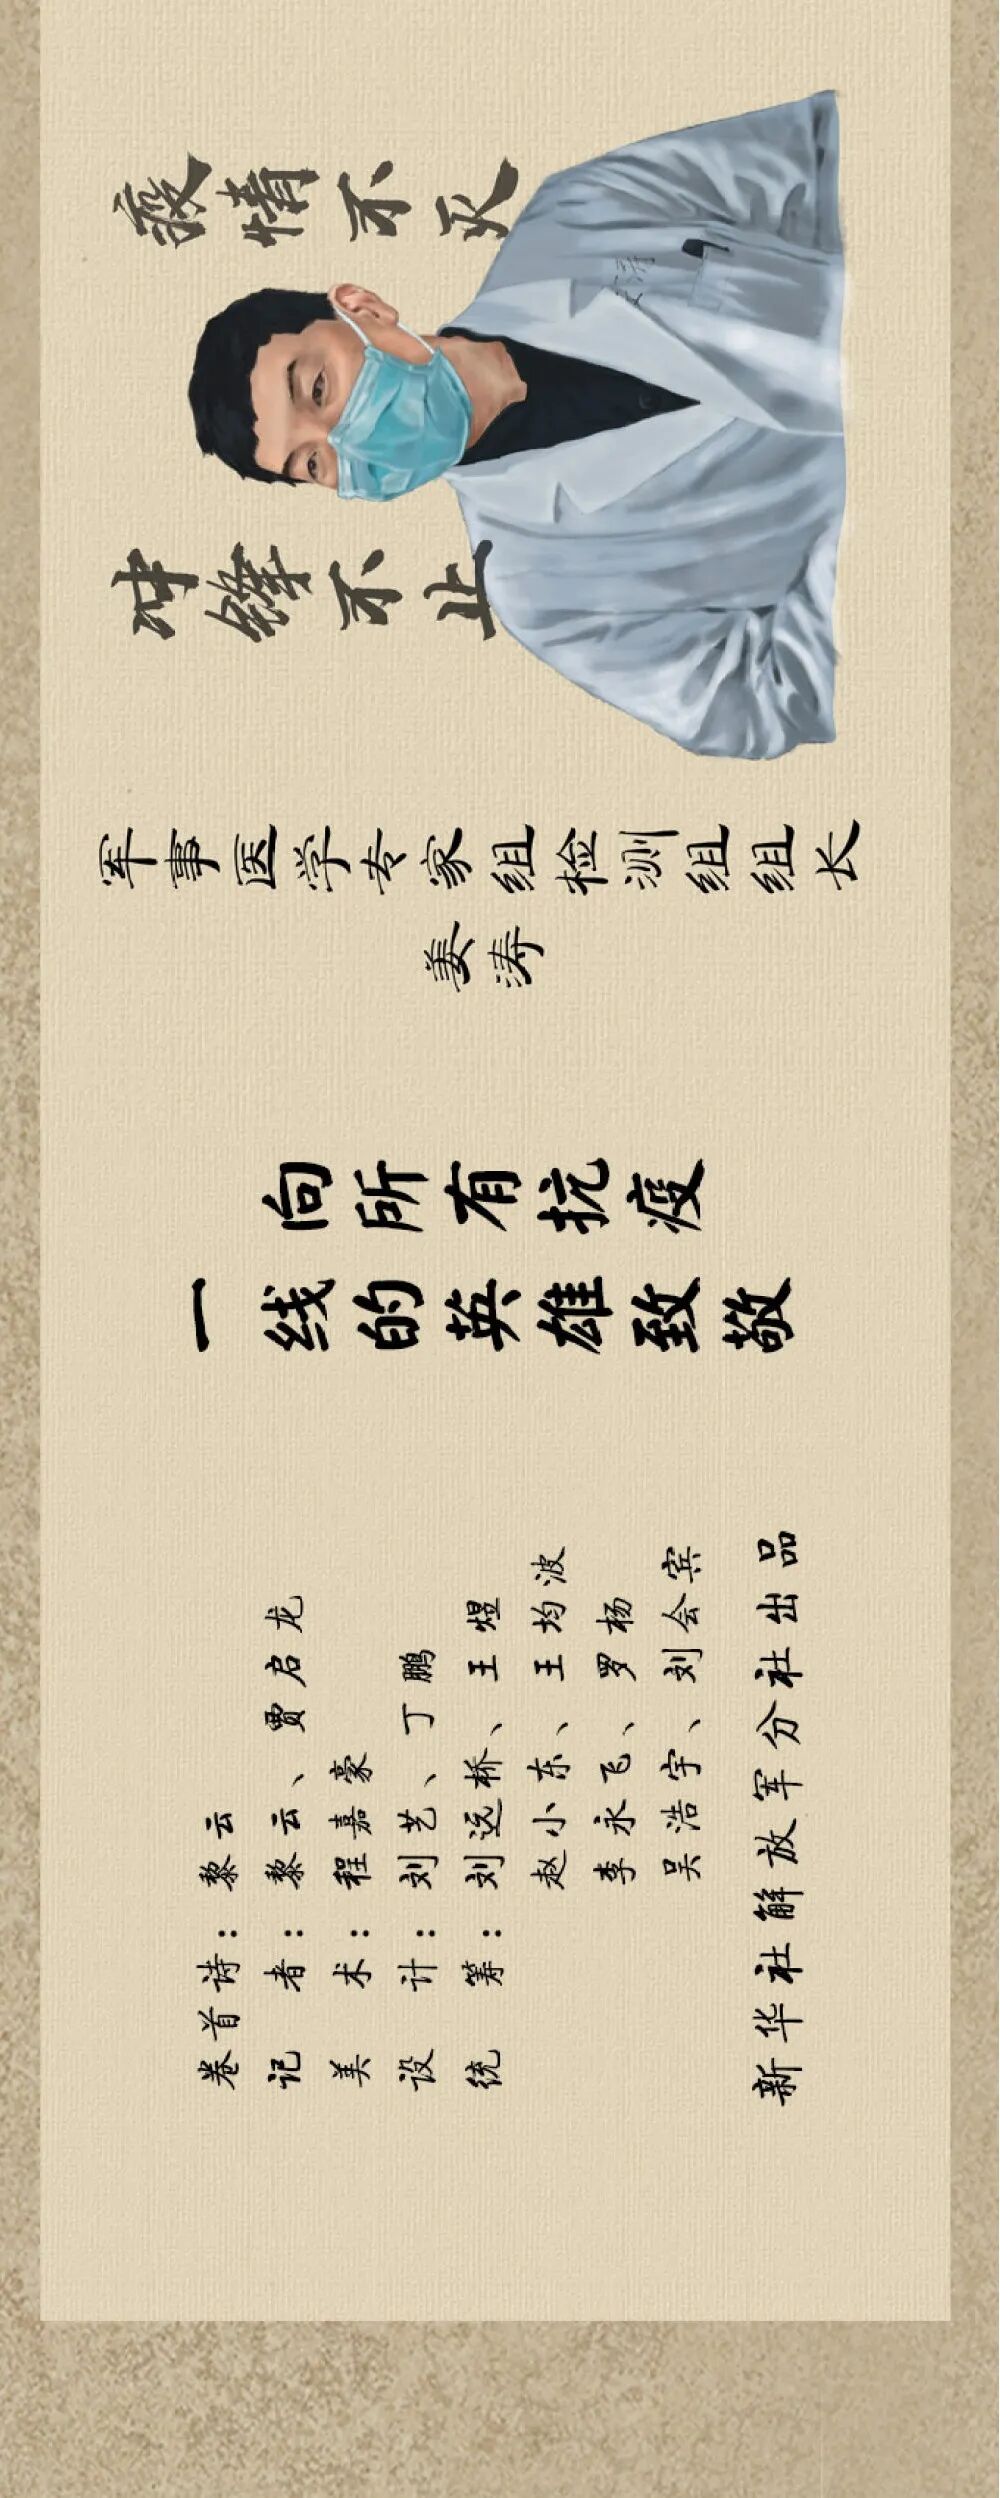 疫情不灭
冲锋不止
军事医学专家组检测组组长
姜涛
向所有抗疫
一线的英雄致敬
卷首诗：黎云
记者：黎云、贾启龙
美术：程嘉豪
设计：刘艺、丁鹏
统筹：刘远桥、王煜
赵小东、王均波
李永飞、罗杨
吴浩宇、刘会宾
新华社解放军分社出品